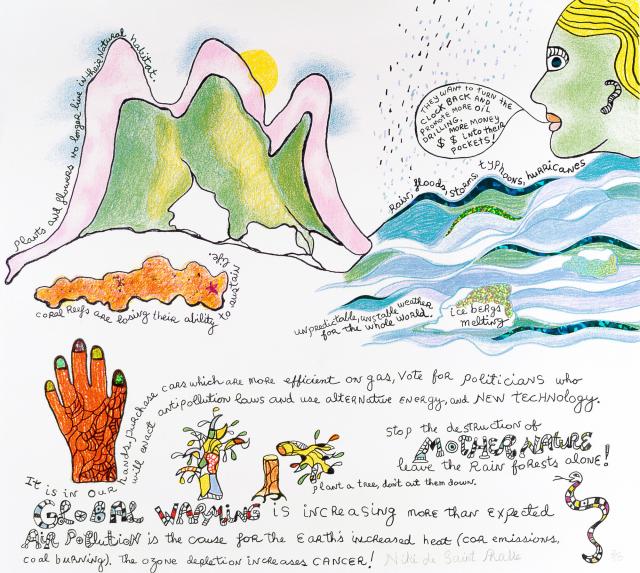 Plants and flowers no longer live in their natural habitat.
THEY WANT to TURN the
CLOCK BACK AND
PROMOTE MORE OIL
DRILLING.
MORE MONEY
$ $ INTO their
POCKETS!
Rain, floods, storms, typhoons, hurricanes
coral Reefs are losing their ability to sustain life.
unpredictable, unstable weather
for the whole world.
ice bergs
melting
It is in our hands. purchase cars which are more efficient on gas, Vote for politicians who
will enact antipollution laws and use alternative energy, and NEW TECHNOLOGY.
Stop the destruction of
MOTHER NATURE
leave the Rain forests alone!
plant a tree, don't cut them down.
GLOBAL WARMING is increasing more than expected
AIR POLLUTION is the cause for the Earth's increased heat (car emissions,
coal burning). The ozone depletion increases CANCER! Niki de Saint Phalle